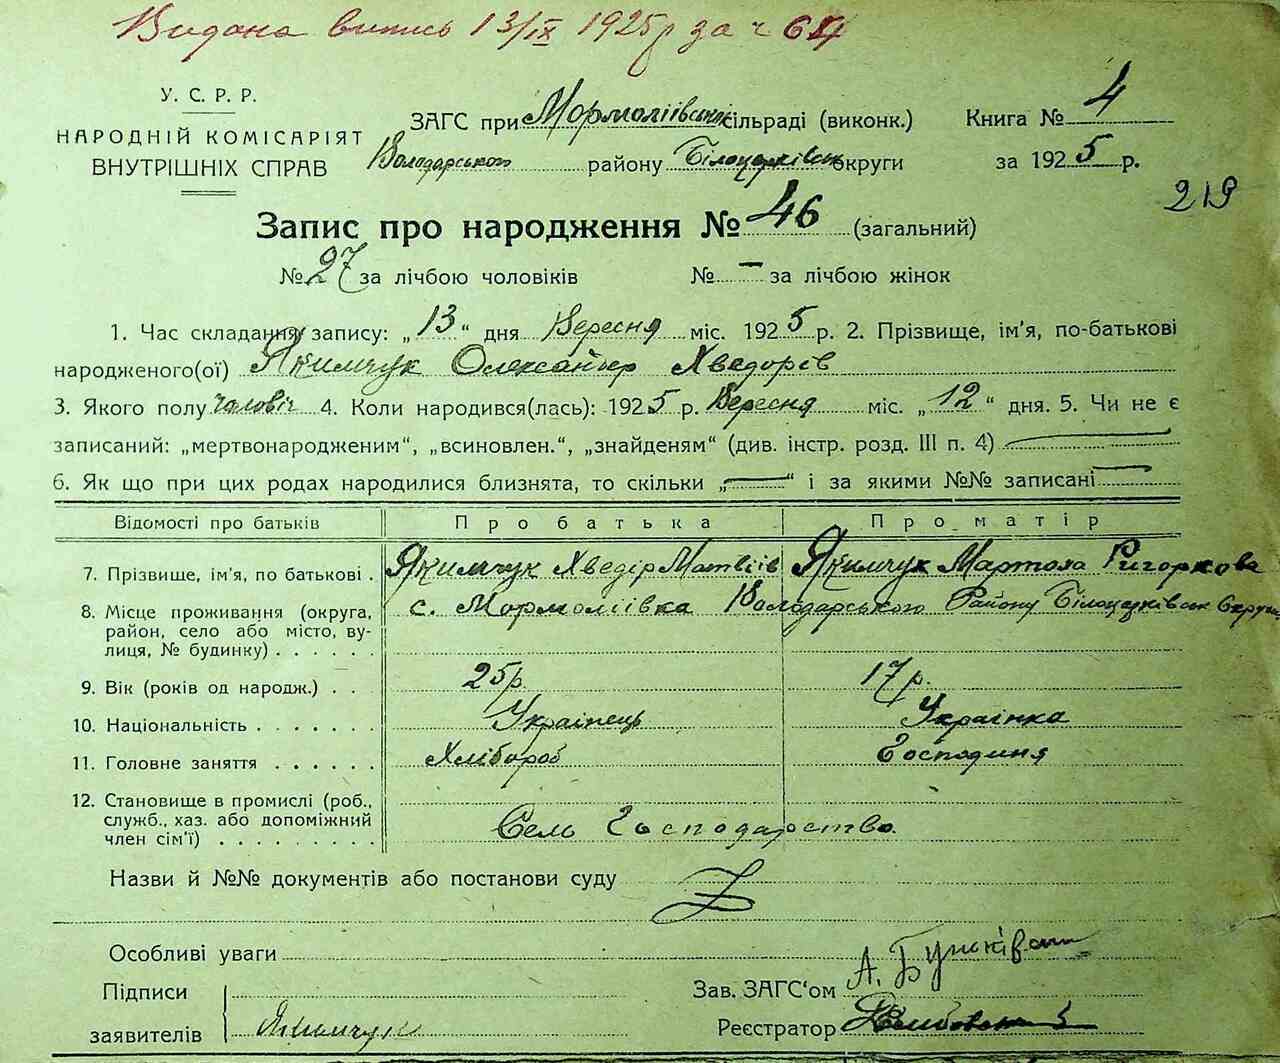 Видана випись 13/IX 1925р за ч 64
У. С. Р. Р.
НАРОДНІЙ КОМІСАРІЯТ
ВНУТРІШНІХ СПРАВ
ЗАГС при Мормоліївськ сільраді (виконк.)
Володарського району Білоцерківськ округи
Книга № 4
за 1925 р.
219
Запис про народження № 46 (загальний)
№ 27 за лічбою чоловіків № — за лічбою жінок
1. Час складання запису: „13“ дня Вересня міс. 1925 р. 2. Прізвище, ім'я, по-батькові
народженого(ої) Якимчук Олександер Хведорів
3. Якого полу чоловіч 4. Коли народився(лась): 1925 р. Вересня міс. „12“ дня. 5. Чи не є
записаний: „мертвонародженим“, „всиновлен.“, „знайденям“ (див. інстр. розд. III п. 4) —
6. Як що при цих родах народилися близнята, то скільки „—“ і за якими №№ записані —
Відомості про батьків Про батька Про матір
7. Прізвище, ім'я, по батькові . Якимчук Хведір Матвіїв Якимчук Мартоха Ригоркова
8. Місце проживання (округа, с. Мормоліївка Володарського Району Білоцерківськ Округи
район, село або місто, ву-
лиця, № будинку) . . . . . .
9. Вік (років од народж.) . . 25р. 17р.
10. Національність . . . . . . . Українець Українка
11. Головне заняття . . . . . . Хлібороб Господиня
12. Становище в промислі (роб.,
служб., хаз. або допоміжний Сель Господарство.
член сім'ї) . . . . . . . . .
Назви й №№ документів або постанови суду
Особливі уваги
Підписи
заявителів Якимчук
Зав. ЗАГС'ом А.
Реєстратор